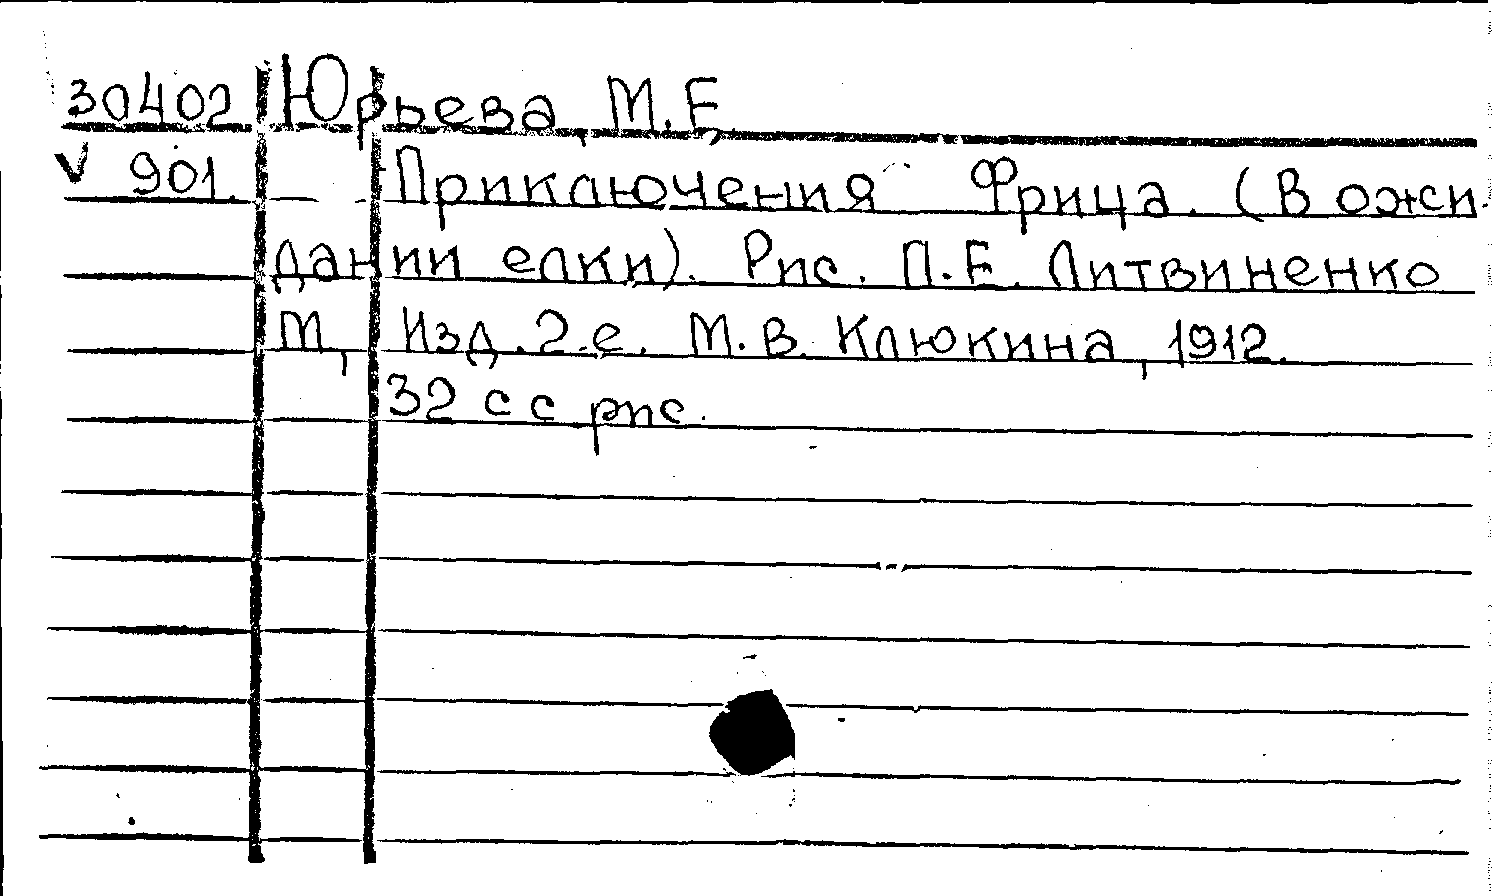 30402 Юрьева, М.Е,
V 901. Приключения Фрица. (В ожи-
дании елки). Рис. П.Е. Литвиненко
М, Изд. 2.е. М.В. Клюкина, 1912.
32 с с рис.